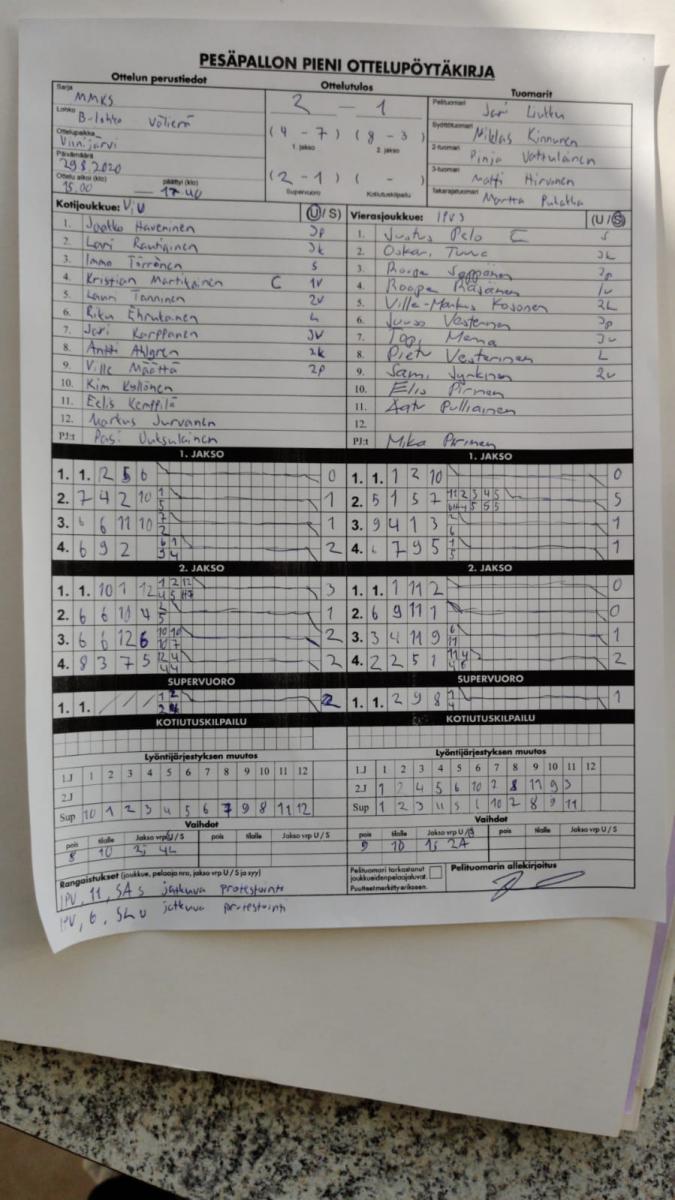 PESÄPALLON PIENI OTTELUPÖYTÄKIRJA
Ottelun perustiedot
Ottelutulos
Tuomarit
Sarja MMKS
Lohko B-lohko Välierä
Ottelupaikka Viinijärvi
Päivämäärä 29.8.2020
Ottelu alkoi (klo) 15.00 päättyi (klo) 17.40
2 - 1
(4 - 7) (8 - 3)
1. jakso 2. jakso
(2 - 1) ( - )
Supervuoro Kotiutuskilpailu
Pelituomari Jari Liuttu
Syöttötuomari Miklas Kinnunen
2-tuomari Pinja Vattulainen
3-tuomari Matti Hirvonen
Takarajatuomari Martta Puhakka
Kotijoukkue: ViU (U/S)
1. Jaakko Haveninen 3p
2. Lari Rautiainen 3k
3. Immo Törrönen S
4. Kristian Martikainen C 1v
5. Lauri Tanninen 2v
6. Riku Ehrukainen L
7. Jari Karppanen 3v
8. Antti Ahlgren 2k
9. Ville Määttä 2p
10. Kim Kyllönen
11. Eelis Kemppilä
12. Markus Jurvanen
PJ:t Pasi Uuksulainen
Vierasjoukkue: (U/S)
1. Justus Pelo C S
2. Oskari
3. Roope Seppänen 2p
4. Roope Räsänen 1v
5. Ville-Markus Kosonen 2k
6. Juuso Vesterinen 3p
7. Topi 3v
8. Pietu Vesterinen L
9. Sami 2v
10. Elis Pirinen
11. Aatu Pulliainen
12.
PJ:t Mika Pirinen
1. JAKSO
1. JAKSO
1. 1. 2 5 6 0
2. 7 4 2 10 1
3. 6 6 11 10 1
4. 6 9 2 2
1. 1. 1 2 10 0
2. 5 1 5 7 5
3. 9 4 1 3 1
4. 6 7 9 5 1
2. JAKSO
2. JAKSO
1. 1. 10 1 12 3
2. 6 6 10 4 1
3. 6 6 12 6 2
4. 8 3 7 5 2
1. 1. 1 11 2 0
2. 6 9 11 1 0
3. 3 4 11 9 1
4. 2 2 5 1 2
SUPERVUORO
SUPERVUORO
1. 1. 2
1. 1. 2 9 8 1
KOTIUTUSKILPAILU
KOTIUTUSKILPAILU
Lyöntijärjestyksen muutos
1.J 1 2 3 4 5 6 7 8 9 10 11 12
2.J
Sup 10 1 2 3 4 5 6 7 9 8 11 12
Lyöntijärjestyksen muutos
1.J 1 2 3 4 5 6 7 8 9 10 11 12
2.J 1 2 4 5 6 10 7 8 11 9 3
Sup 1 2 3 4 5 6 10 2 8 9 11
Vaihdot
pois tilalle Jakso vrp U / S pois tilalle Jakso vrp U / S
8 10 2j 4L
Vaihdot
pois tilalle Jakso vrp U / S pois tilalle Jakso vrp U / S
9 10 1j 2A
Rangaistukset (joukkue, pelaaja nro, jakso vrp U / S ja syy)
IPV, 11, SAs jatkuva protestointi
IPV, 6, jatkuva protestointi
Pelituomari tarkastanut joukkueidenpelaajaluvat.
Puutteet merkitty erikseen.
Pelituomarin allekirjoitus